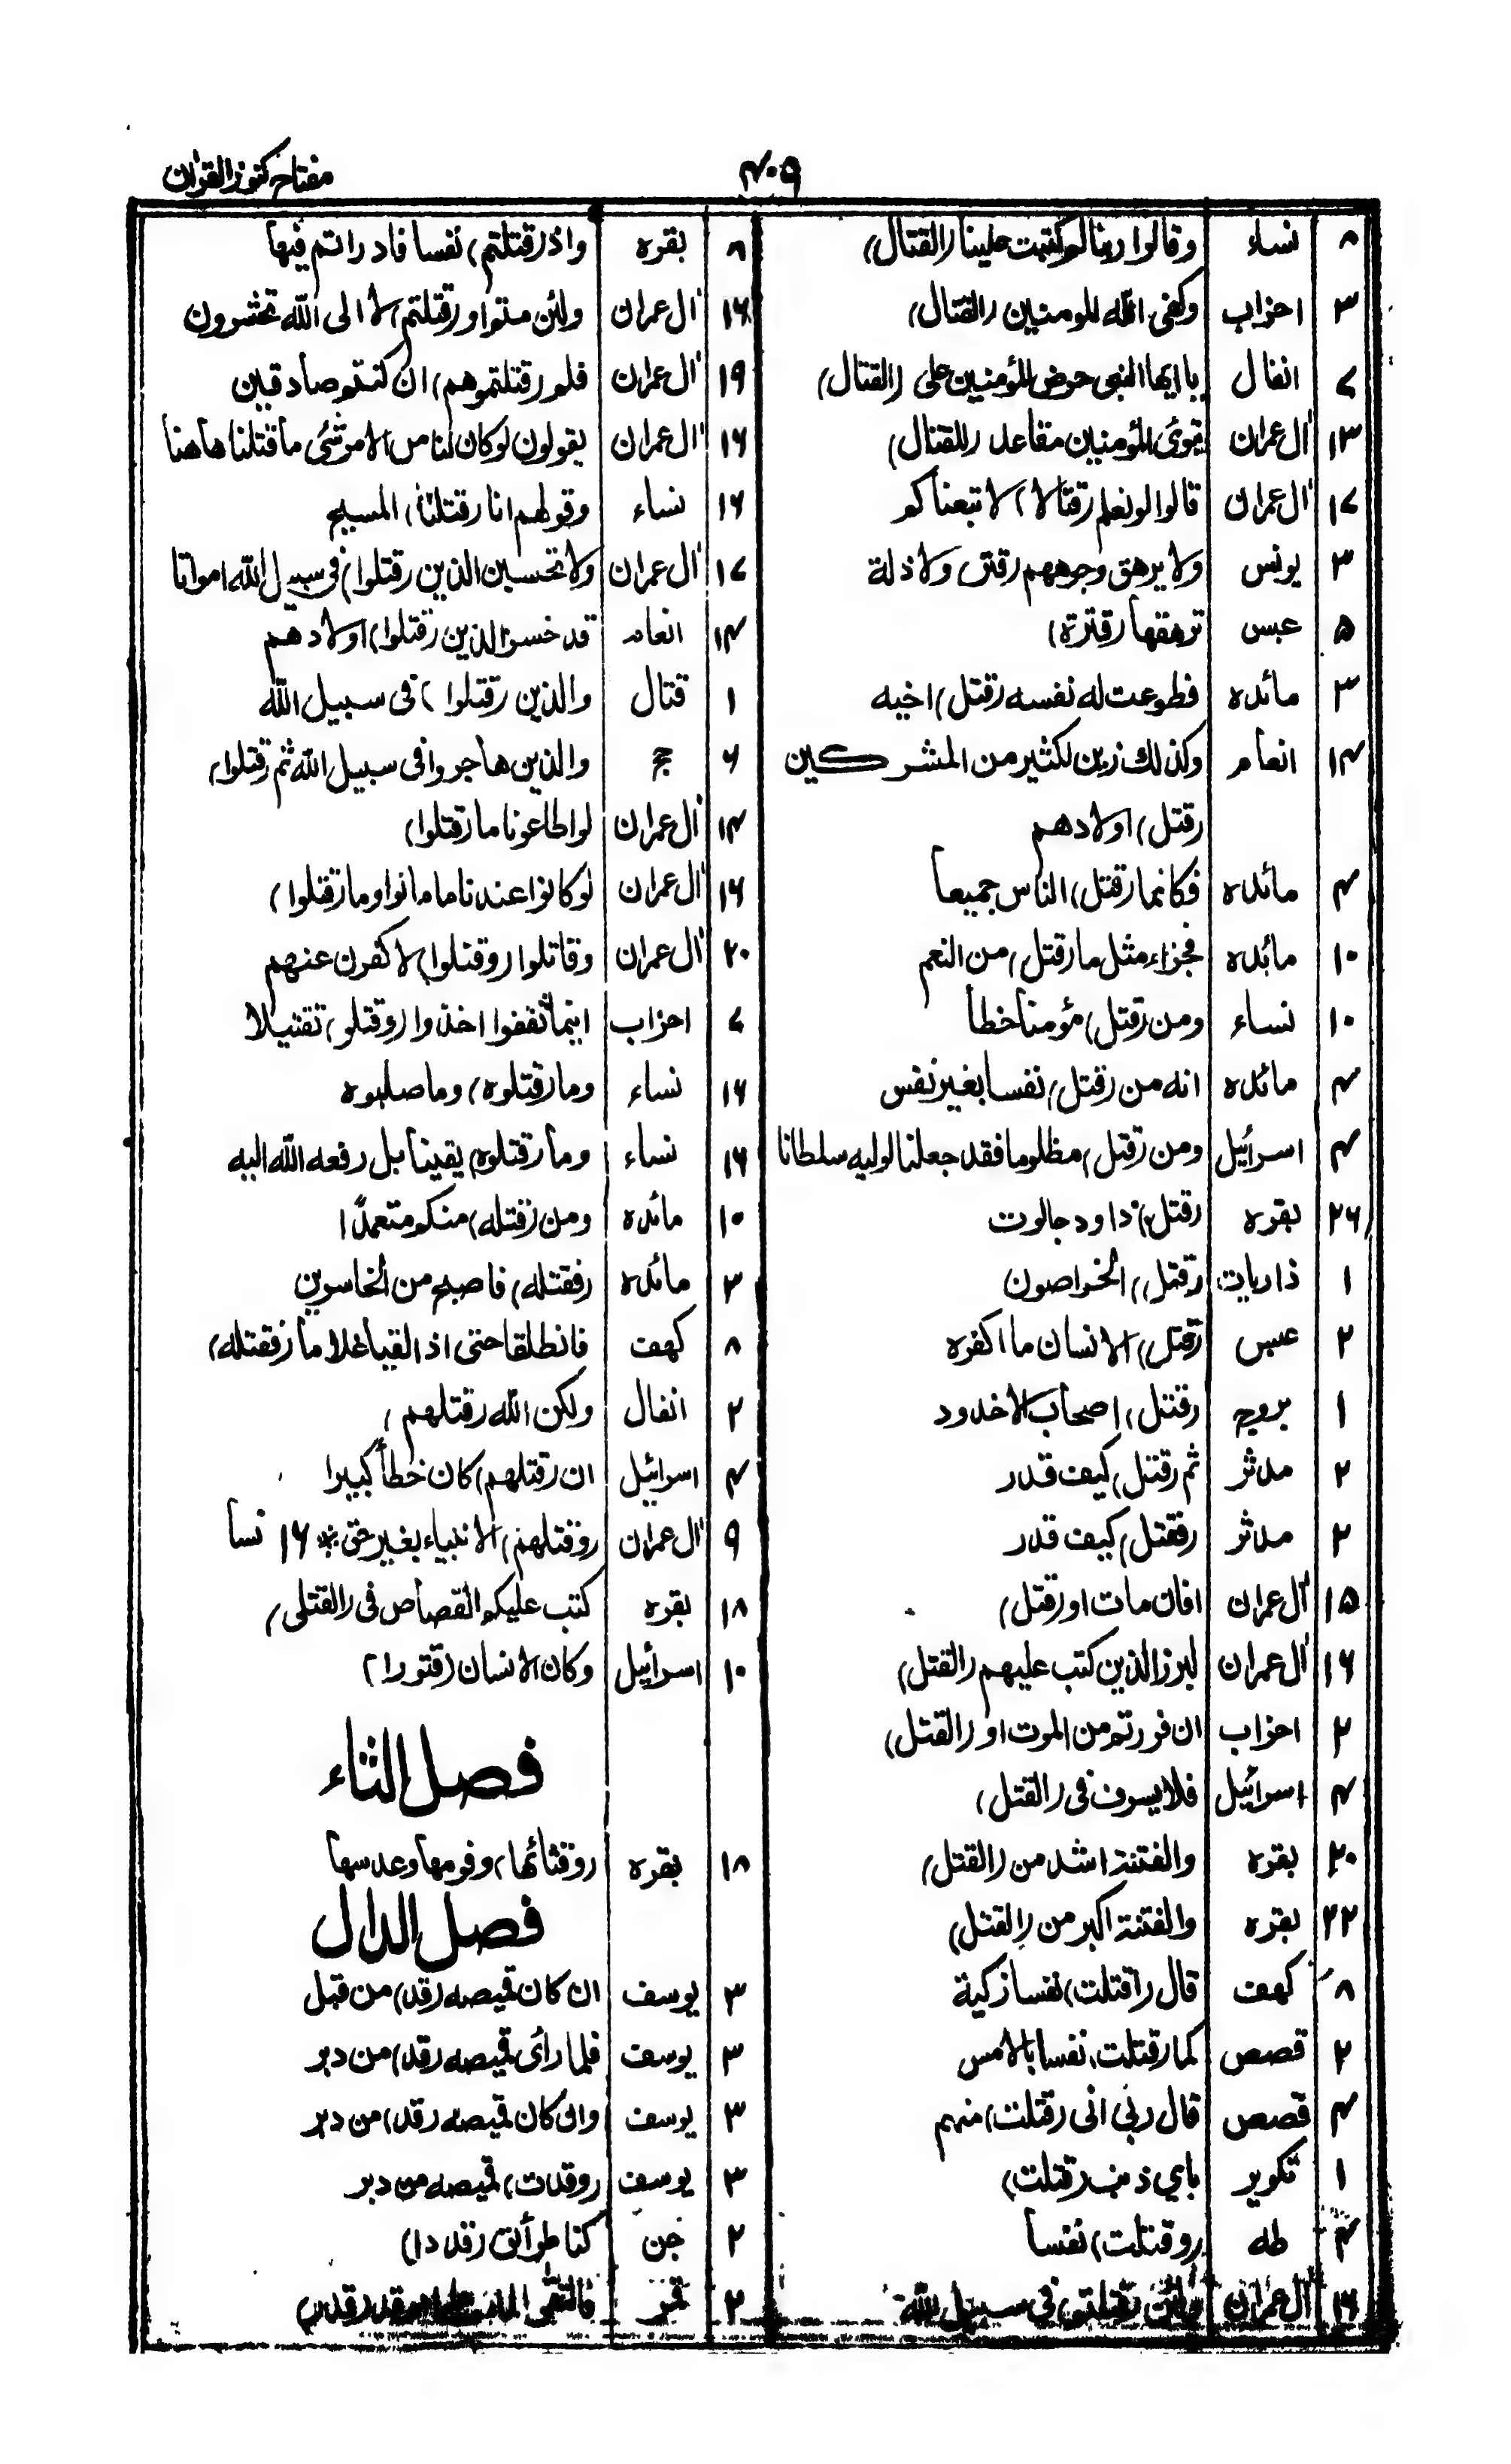 ۴۰۹
مفتاح کنوز القرآن
۸ نساء وقالوا ربنا لم کتبت علینا (القتال)
۳ احزاب وکفی الله المومنین (القتال)
۷ انفال یا ایها النبی حرض المؤمنین علی (القتال)
۱۳ اٰل عمران تبوئ المؤمنین مقاعد (للقتال)
۱۷ اٰل عمران قالوا لو نعلم (قتالا) لا تبعناکم
۳ یونس ولا یرهق وجوههم (قتر) ولا ذلة
۵ عبس ترهقها (قترة)
۳ مائده فطوعت له نفسه (قتل) اخیه
۱۴ انعام وکذلك زین لکثیر من المشرکین
(قتل) اولادهم
۴ مائده فکانما (قتل) الناس جمیعا
۱۰ مائده فجزاء مثل ما (قتل) من النعم
۱۰ نساء ومن (قتل) مؤمنا خطأ
۴ مائده انه من (قتل) نفسا بغیر نفس
۴ اسرائیل ومن (قتل) مظلوما فقد جعلنا لولیه سلطانا
۲۶ بقره (قتل) داود جالوت
۱ ذاریات (قتل) الخراصون
۲ عبس (قتل) الانسان ما اکفره
۱ بروج (قتل) اصحاب الاخدود
۲ مدثر ثم (قتل) کیف قدر
۲ مدثر (فقتل) کیف قدر
۱۵ اٰل عمران افان مات او (قتل)
۱۶ اٰل عمران لبرز الذین کتب علیهم (القتل)
۲ احزاب ان فررتم من الموت او (القتل)
۴ اسرائیل فلا یسرف فی (القتل)
۲۰ بقره والفتنة اشد من (القتل)
۲۲ بقره والفتنة اکبر من (القتل)
۸ کهف قال (اقتلت) نفسا زکیة
۲ قصص کما (قتلت) نفسا بالامس
۴ قصص قال ربی انی (قتلت) منهم
۱ تکویر بای ذنب (قتلت)
۴ طه (وقتلت) نفسا
۱۶ اٰل عمران ولئن (قتلتم) فی سبیل الله
۸ بقره واذ (قتلتم) نفسا فادراتم فیها
۱۶ اٰل عمران ولئن متم او (قتلتم) لا الی الله تحشرون
۱۹ اٰل عمران فلم (قتلتموهم) ان کنتم صادقین
۱۶ اٰل عمران یقولون لو کان لنا من الامر شئ ما قتلنا هاهنا
۱۶ نساء وقولهم انا (قتلنا) المسیح
۱۷ اٰل عمران ولا تحسبن الذین (قتلوا) فی سبیل الله امواتا
۱۴ انعام قد خسر الذین (قتلوا) اولادهم
۱ قتال والذین (قتلوا) فی سبیل الله
۶ حج والذین هاجروا فی سبیل الله ثم (قتلوا)
۱۴ اٰل عمران لو اطاعونا ما (قتلوا)
۱۶ اٰل عمران لو کانوا عندنا ما ماتوا وما (قتلوا)
۲۰ اٰل عمران وقاتلوا (وقتلوا) لا کفرن عنهم
۷ احزاب اینما ثقفوا اخذوا (وقتلو) تقتیلا
۱۶ نساء وما (قتلوه) وما صلبوه
۱۶ نساء وما (قتلوه) یقینا بل رفعه الله الیه
۱۰ مائده ومن (قتله) منکم متعمدًا
۳ مائده (فقتله) فاصبح من الخاسرین
۸ کهف فانطلقا حتی اذا لقیا غلاما (فقتله)
۲ انفال ولکن الله (قتلهم)
۴ اسرائیل ان (قتلهم) کان خطأ کبیرا
۹ اٰل عمران (وقتلهم) الانبیاء بغیر حق ۱۶ نسا
۱۸ بقره کتب علیکم القصاص فی (القتلی)
۱۰ اسرائیل وکان الانسان (قتورا)
فصل الثاء
۱۸ بقره (وقثائها) وفومها وعدسها
فصل الدال
۳ یوسف ان کان قمیصه (قد) من قبل
۳ یوسف فلما رأی قمیصه (قد) من دبر
۳ یوسف وان کان قمیصه (قد) من دبر
۳ یوسف (وقدت) قمیصه من دبر
۲ جن کنا طرأئق (قددا)
۲ قمر فالتقی الماء قد (قدر)